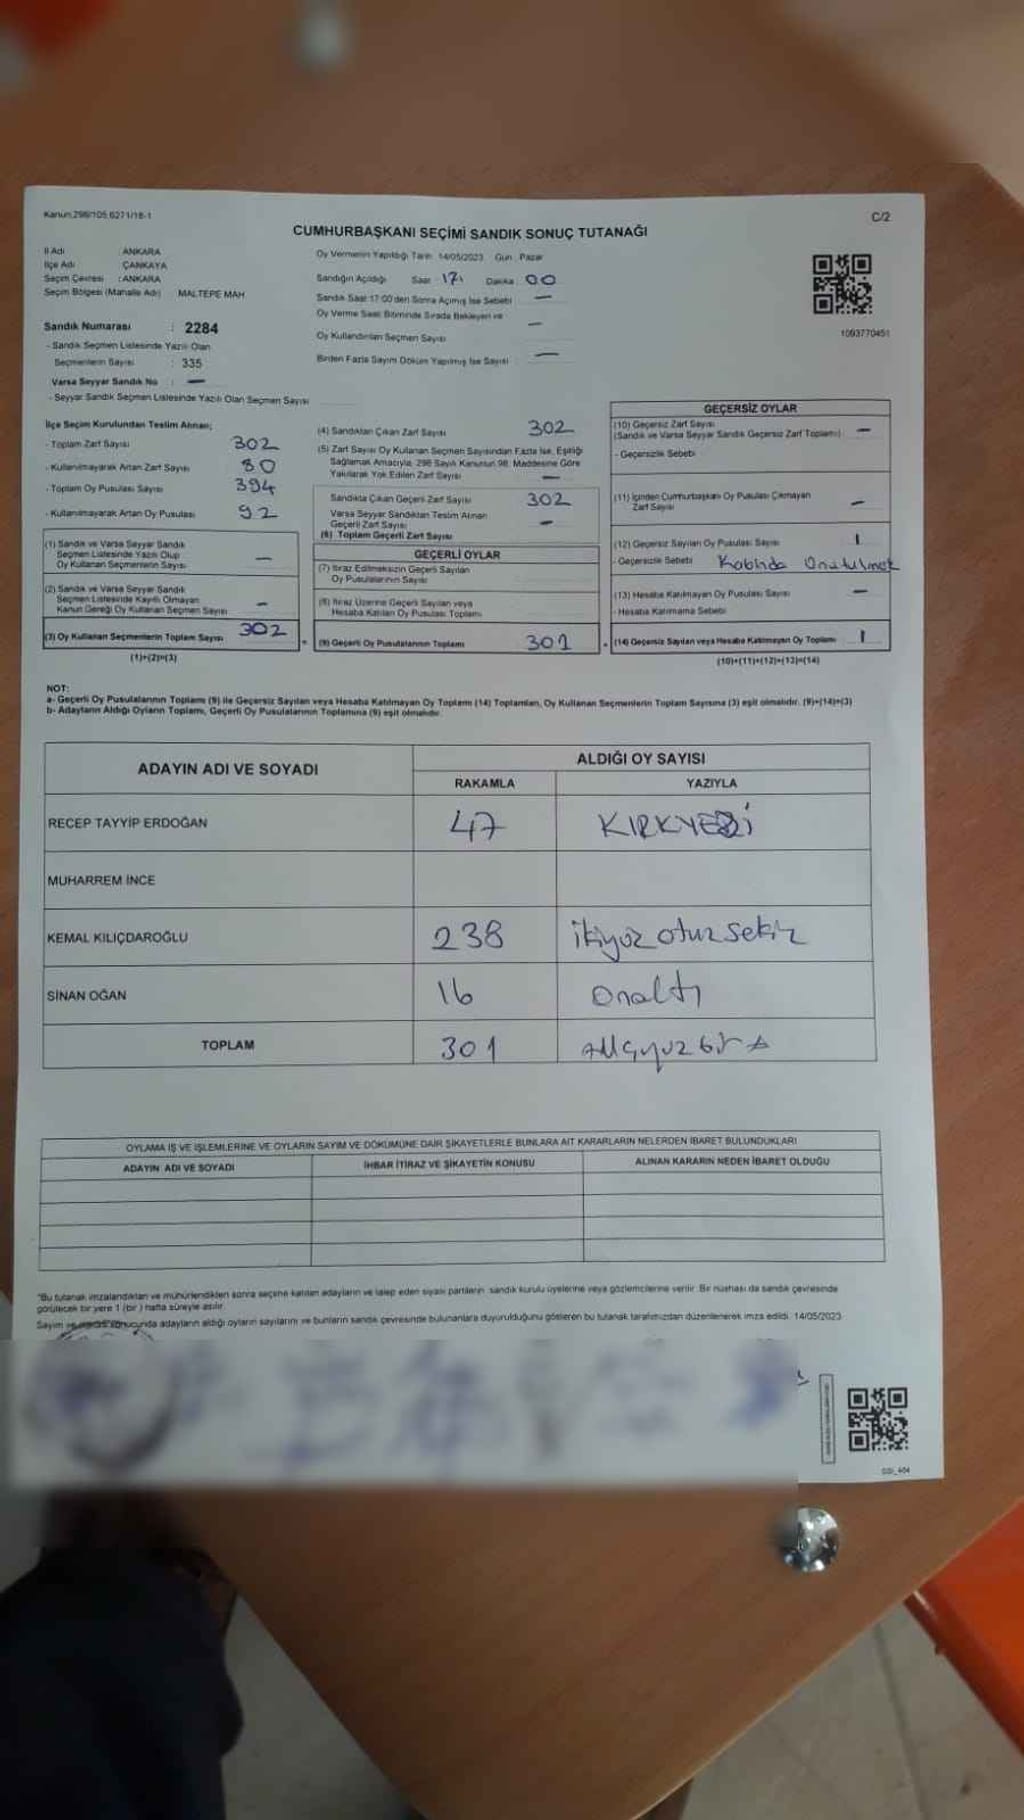 Kanun:298/105,6271/18-1
C/2
CUMHURBAŞKANI SEÇİMİ SANDIK SONUÇ TUTANAĞI
İl Adı : ANKARA
İlçe Adı : ÇANKAYA
Seçim Çevresi : ANKARA
Seçim Bölgesi (Mahalle Adı) MALTEPE MAH.
Sandık Numarası : 2284
- Sandık Seçmen Listesinde Yazılı Olan
Seçmenlerin Sayısı : 335
Varsa Seyyar Sandık No : —
- Seyyar Sandık Seçmen Listesinde Yazılı Olan Seçmen Sayısı
Oy Vermenin Yapıldığı Tarih: 14/05/2023 Gün : Pazar
Sandığın Açıldığı Saat : 17 Dakika : 00
Sandık Saat 17:00'den Sonra Açılmış İse Sebebi : —
Oy Verme Saati Bitiminde Sırada Bekleyen ve —
Oy Kullandırılan Seçmen Sayısı
Birden Fazla Sayım Döküm Yapılmış İse Sayısı —
1093770451
İlçe Seçim Kurulundan Teslim Alınan;
- Toplam Zarf Sayısı 302
- Kullanılmayarak Artan Zarf Sayısı 80
- Toplam Oy Pusulası Sayısı 394
- Kullanılmayarak Artan Oy Pusulası 92
(1) Sandık ve Varsa Seyyar Sandık
Seçmen Listesinde Yazılı Olup
Oy Kullanan Seçmenlerin Sayısı —
(2) Sandık ve Varsa Seyyar Sandık
Seçmen Listesinde Kayıtlı Olmayan
Kanun Gereği Oy Kullanan Seçmen Sayısı —
(3) Oy Kullanan Seçmenlerin Toplam Sayısı 302
(1)+(2)=(3)
(4) Sandıktan Çıkan Zarf Sayısı 302
(5) Zarf Sayısı Oy Kullanan Seçmen Sayısından Fazla İse, Eşitliği
Sağlamak Amacıyla, 298 Sayılı Kanunun 98. Maddesine Göre
Yakılarak Yok Edilen Zarf Sayısı —
Sandıkta Çıkan Geçerli Zarf Sayısı 302
Varsa Seyyar Sandıktan Teslim Alınan
Geçerli Zarf Sayısı —
(6) Toplam Geçerli Zarf Sayısı
GEÇERLİ OYLAR
(7) İtiraz Edilmeksizin Geçerli Sayılan
Oy Pusulalarının Sayısı
(8) İtiraz Üzerine Geçerli Sayılan veya
Hesaba Katılan Oy Pusulası Toplamı
(9) Geçerli Oy Pusulalarının Toplamı 301
GEÇERSİZ OYLAR
(10) Geçersiz Zarf Sayısı —
(Sandık ve Varsa Seyyar Sandık Geçersiz Zarf Toplamı)
- Geçersizlik Sebebi
(11) İçinden Cumhurbaşkanı Oy Pusulası Çıkmayan
Zarf Sayısı —
(12) Geçersiz Sayılan Oy Pusulası Sayısı 1
- Geçersizlik Sebebi Kabinde Unutulmak
(13) Hesaba Katılmayan Oy Pusulası Sayısı —
- Hesaba Katılmama Sebebi
(14) Geçersiz Sayılan veya Hesaba Katılmayan Oy Toplamı 1
(10)+(11)+(12)+(13)=(14)
NOT:
a- Geçerli Oy Pusulalarının Toplamı (9) ile Geçersiz Sayılan veya Hesaba Katılmayan Oy Toplamı (14) Toplamları, Oy Kullanan Seçmenlerin Toplam Sayısına (3) eşit olmalıdır. (9)+(14)=(3)
b- Adayların Aldığı Oyların Toplamı, Geçerli Oy Pusulalarının Toplamına (9) eşit olmalıdır.
ADAYIN ADI VE SOYADI
ALDIĞI OY SAYISI
RAKAMLA YAZIYLA
RECEP TAYYİP ERDOĞAN 47 KIRKYEDİ
MUHARREM İNCE
KEMAL KILIÇDAROĞLU 238 ikiyüz otuz sekiz
SİNAN OĞAN 16 Onaltı
TOPLAM 301
OYLAMA İŞ VE İŞLEMLERİNE VE OYLARIN SAYIM VE DÖKÜMÜNE DAİR ŞİKAYETLERLE BUNLARA AİT KARARLARIN NELERDEN İBARET BULUNDUKLARI
ADAYIN ADI VE SOYADI İHBAR İTİRAZ VE ŞİKAYETİN KONUSU ALINAN KARARIN NEDEN İBARET OLDUĞU
"Bu tutanak imzalandıktan ve mühürlendikten sonra seçime katılan adayların ve talep eden siyasi partilerin sandık kurulu üyelerine veya gözlemcilerine verilir. Bir nüshası da sandık çevresinde
görülecek bir yere 1 (bir) hafta süreyle asılır.
Sayım ve döküm sonucunda adayların aldığı oyların sayılarını ve bunların sandık çevresinde bulunanlara duyurulduğunu gösteren bu tutanak tarafımızdan düzenlenerek imza edildi. 14/05/2023